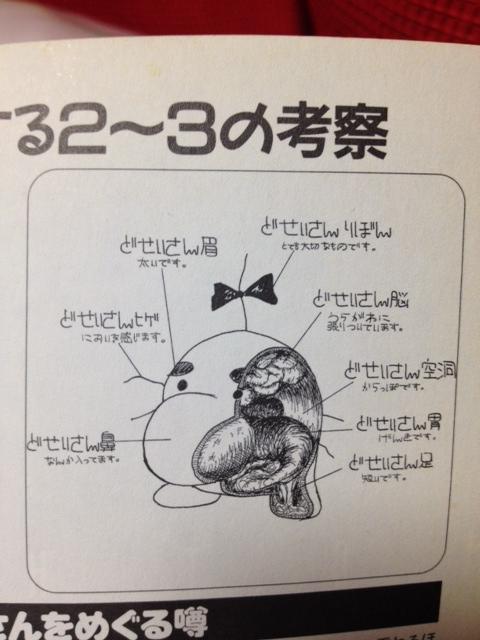 する2〜3の考察
どせいさんりぼん
とても大切なものです。
どせいさん眉
太いです。
どせいさん脳
うらがわに
張りついています。
どせいさんヒゲ
においを感じます。
どせいさん空洞
からっぽです。
どせいさん胃
げんきです。
どせいさん鼻
なんか入ってます。
どせいさん足
短いです。
さんをめぐる噂